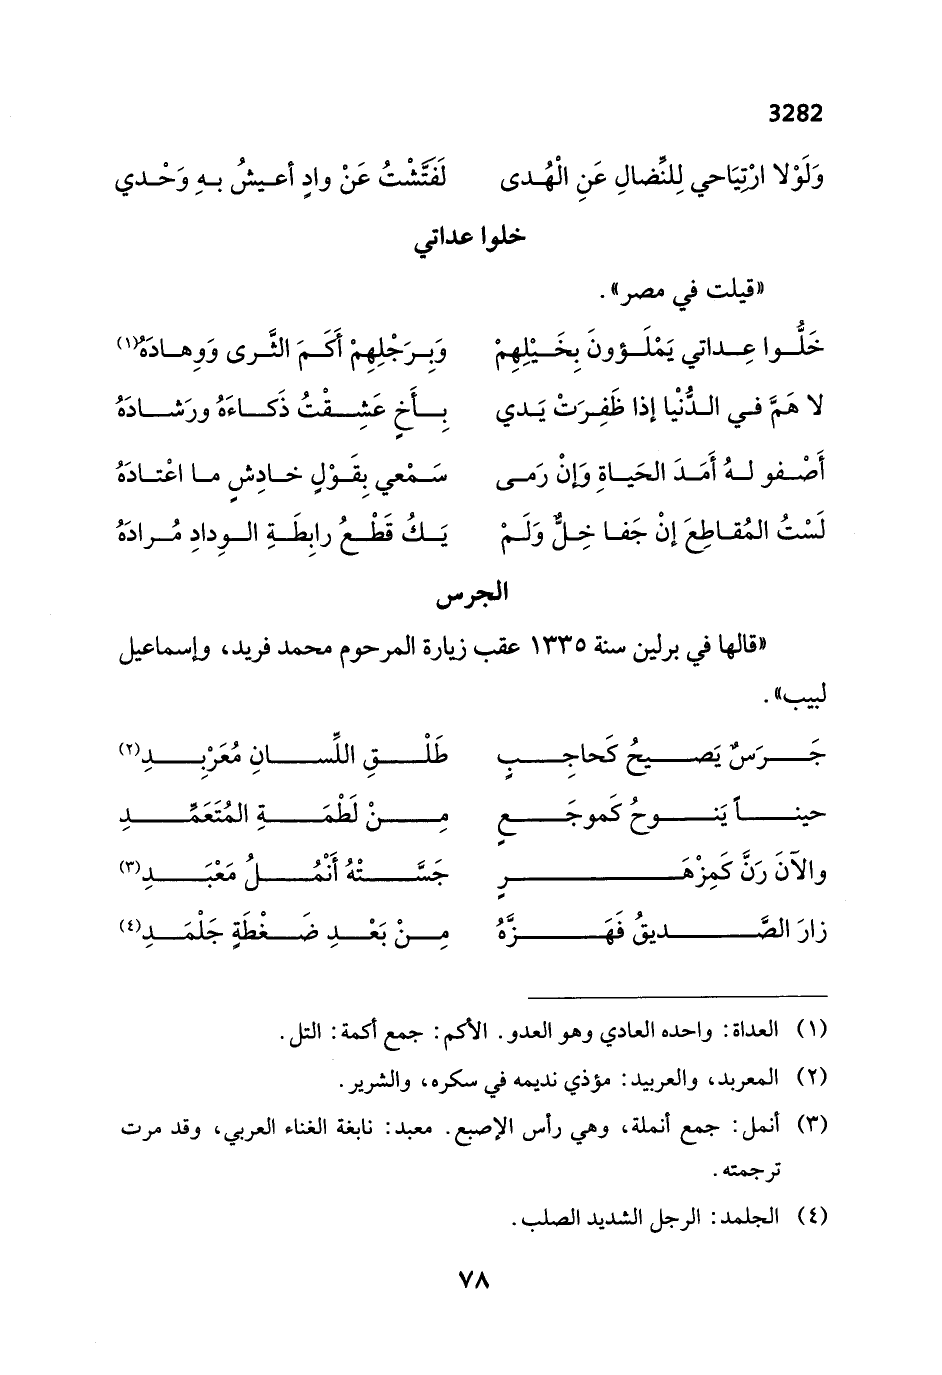 3282
وَلَوْلا ارْتِيَاحي لِلنِّضالِ عَنِ الْهُدى لَفَتَّشْتُ عَنْ وادٍ أعيشُ بهِ وَحْدي
خلوا عداتي
«قيلت في مصر».
خَلُّوا عِداتي يَمْلَؤونَ بِخَيْلِهِمْ وَبِرَجْلِهِمْ أَكَمَ الثَّرى وَوِهادَهُ(١)
لا هَمَّ في الدُّنْيا إذا ظَفِرَتْ يَدي بِأَخٍ عَشِقْتُ ذَكاءَهُ ورَشادَهُ
أَصْفو لهُ أَمَدَ الحَياةِ وَإنْ رَمى سَمْعي بِقَوْلٍ خادِشٍ ما اعْتادَهُ
لَسْتُ المُقاطِعَ إنْ جَفا خِلٌّ وَلَمْ يَكُ قَطْعُ رابِطَةِ الوِدادِ مُرادَهُ
الجرس
«قالها في برلين سنة ١٣٣٥ عقب زيارة المرحوم محمد فريد، وإسماعيل
لبيب».
جَرَسٌ يَصيحُ كَحاجِبٍ طَلْقِ اللِّسانِ مُعَرْبِدِ(٢)
حيناً يَنوحُ كَموجَعٍ مِنْ لَطْمَةِ المُتَعَمِّدِ
والآنَ رَنَّ كَمِزْهَرٍ جَسَّتْهُ أَنْمُلُ مَعْبَدِ(٣)
زارَ الصَّديقُ فَهَزَّهُ مِنْ بَعْدِ ضَغْطَةِ جَلْمَدِ(٤)
(١) العداة: واحده العادي وهو العدو. الأكم: جمع أكمة: التل.
(٢) المعربد، والعربيد: مؤذي نديمه في سكره، والشرير.
(٣) أنمل: جمع أنملة، وهي رأس الإصبع. معبد: نابغة الغناء العربي، وقد مرت
ترجمته.
(٤) الجلمد: الرجل الشديد الصلب.
٧٨